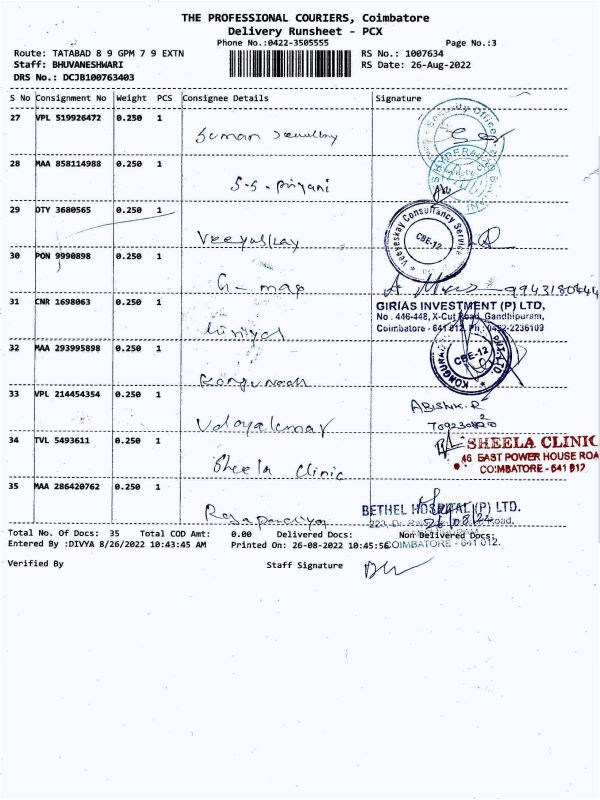 THE PROFESSIONAL COURIERS, Coimbatore
Delivery Runsheet - PCX
Phone No.:0422-3505555 Page No.:3
Route: TATABAD 8 9 GPM 7 9 EXTN RS No.: 1007634
Staff: BHUVANESHWARI RS Date: 26-Aug-2022
DRS No.: DCJB100763403
S No Consignment No Weight PCS Consignee Details Signature
27 VPL 519926472 0.250 1
Suman Jewellery
28 MAA 858114988 0.250 1
S-S. Priyani
29 DTY 3680565 0.250 1
Veeyeskay Consultancy Service
CBE-12
Veeyeskay
30 PON 9990898 0.250 1
G-map 9943180444
31 CNR 1698063 0.250 1 GIRIAS INVESTMENT (P) LTD,
No. 446-448, X-Cut Road, Gandhipuram,
Coimbatore - 641 012. Ph: 0422-2236109
32 MAA 293995898 0.250 1
CBE-12
Kongunadh
33 VPL 214454354 0.250 1
ABISHK.R
Udayakumar
34 TVL 5493611 0.250 1 SHEELA CLINIC
46 EAST POWER HOUSE ROA
COIMBATORE - 641 012
Sheela Clinic
35 MAA 286420762 0.250 1
BETHEL HOSPITAL (P) LTD.
Rajapandiya
26/08/22
Total No. Of Docs: 35 Total COD Amt: 0.00 Delivered Docs: Non Delivered Docs:
Entered By :DIVYA 8/26/2022 10:43:45 AM Printed On: 26-08-2022 10:45:56 COIMBATORE - 641 012.
Verified By Staff Signature